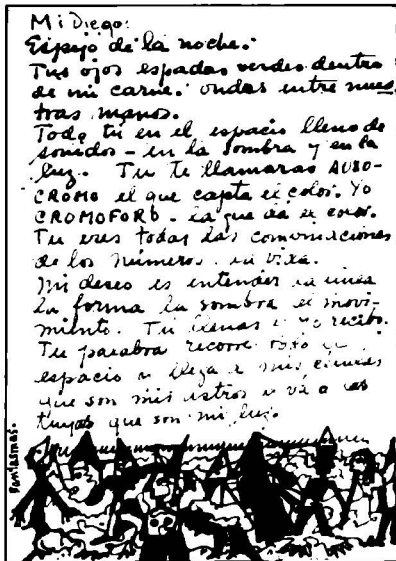 Mi Diego:
Espejo de la noche.
Tus ojos espadas verdes dentro
de mi carne. ondas entre nues
tras manos.
Todo tú en el espacio lleno de
sonidos - en la sombra y en la
luz. Tu te llamaras AUXO-
CROMO el que capta el color. Yo
CROMOFORO - la que da el color.
Tu eres todas las combinaciones
de los números. la vida.
mi deseo es entender la linea
la forma la sombra el movi-
miento. Tu llenas y yo recibo.
Tu palabra recorre todo el
espacio y llega a mis células
que son mis astros y va a las
tuyas que son mi luz.
Fantasmas.